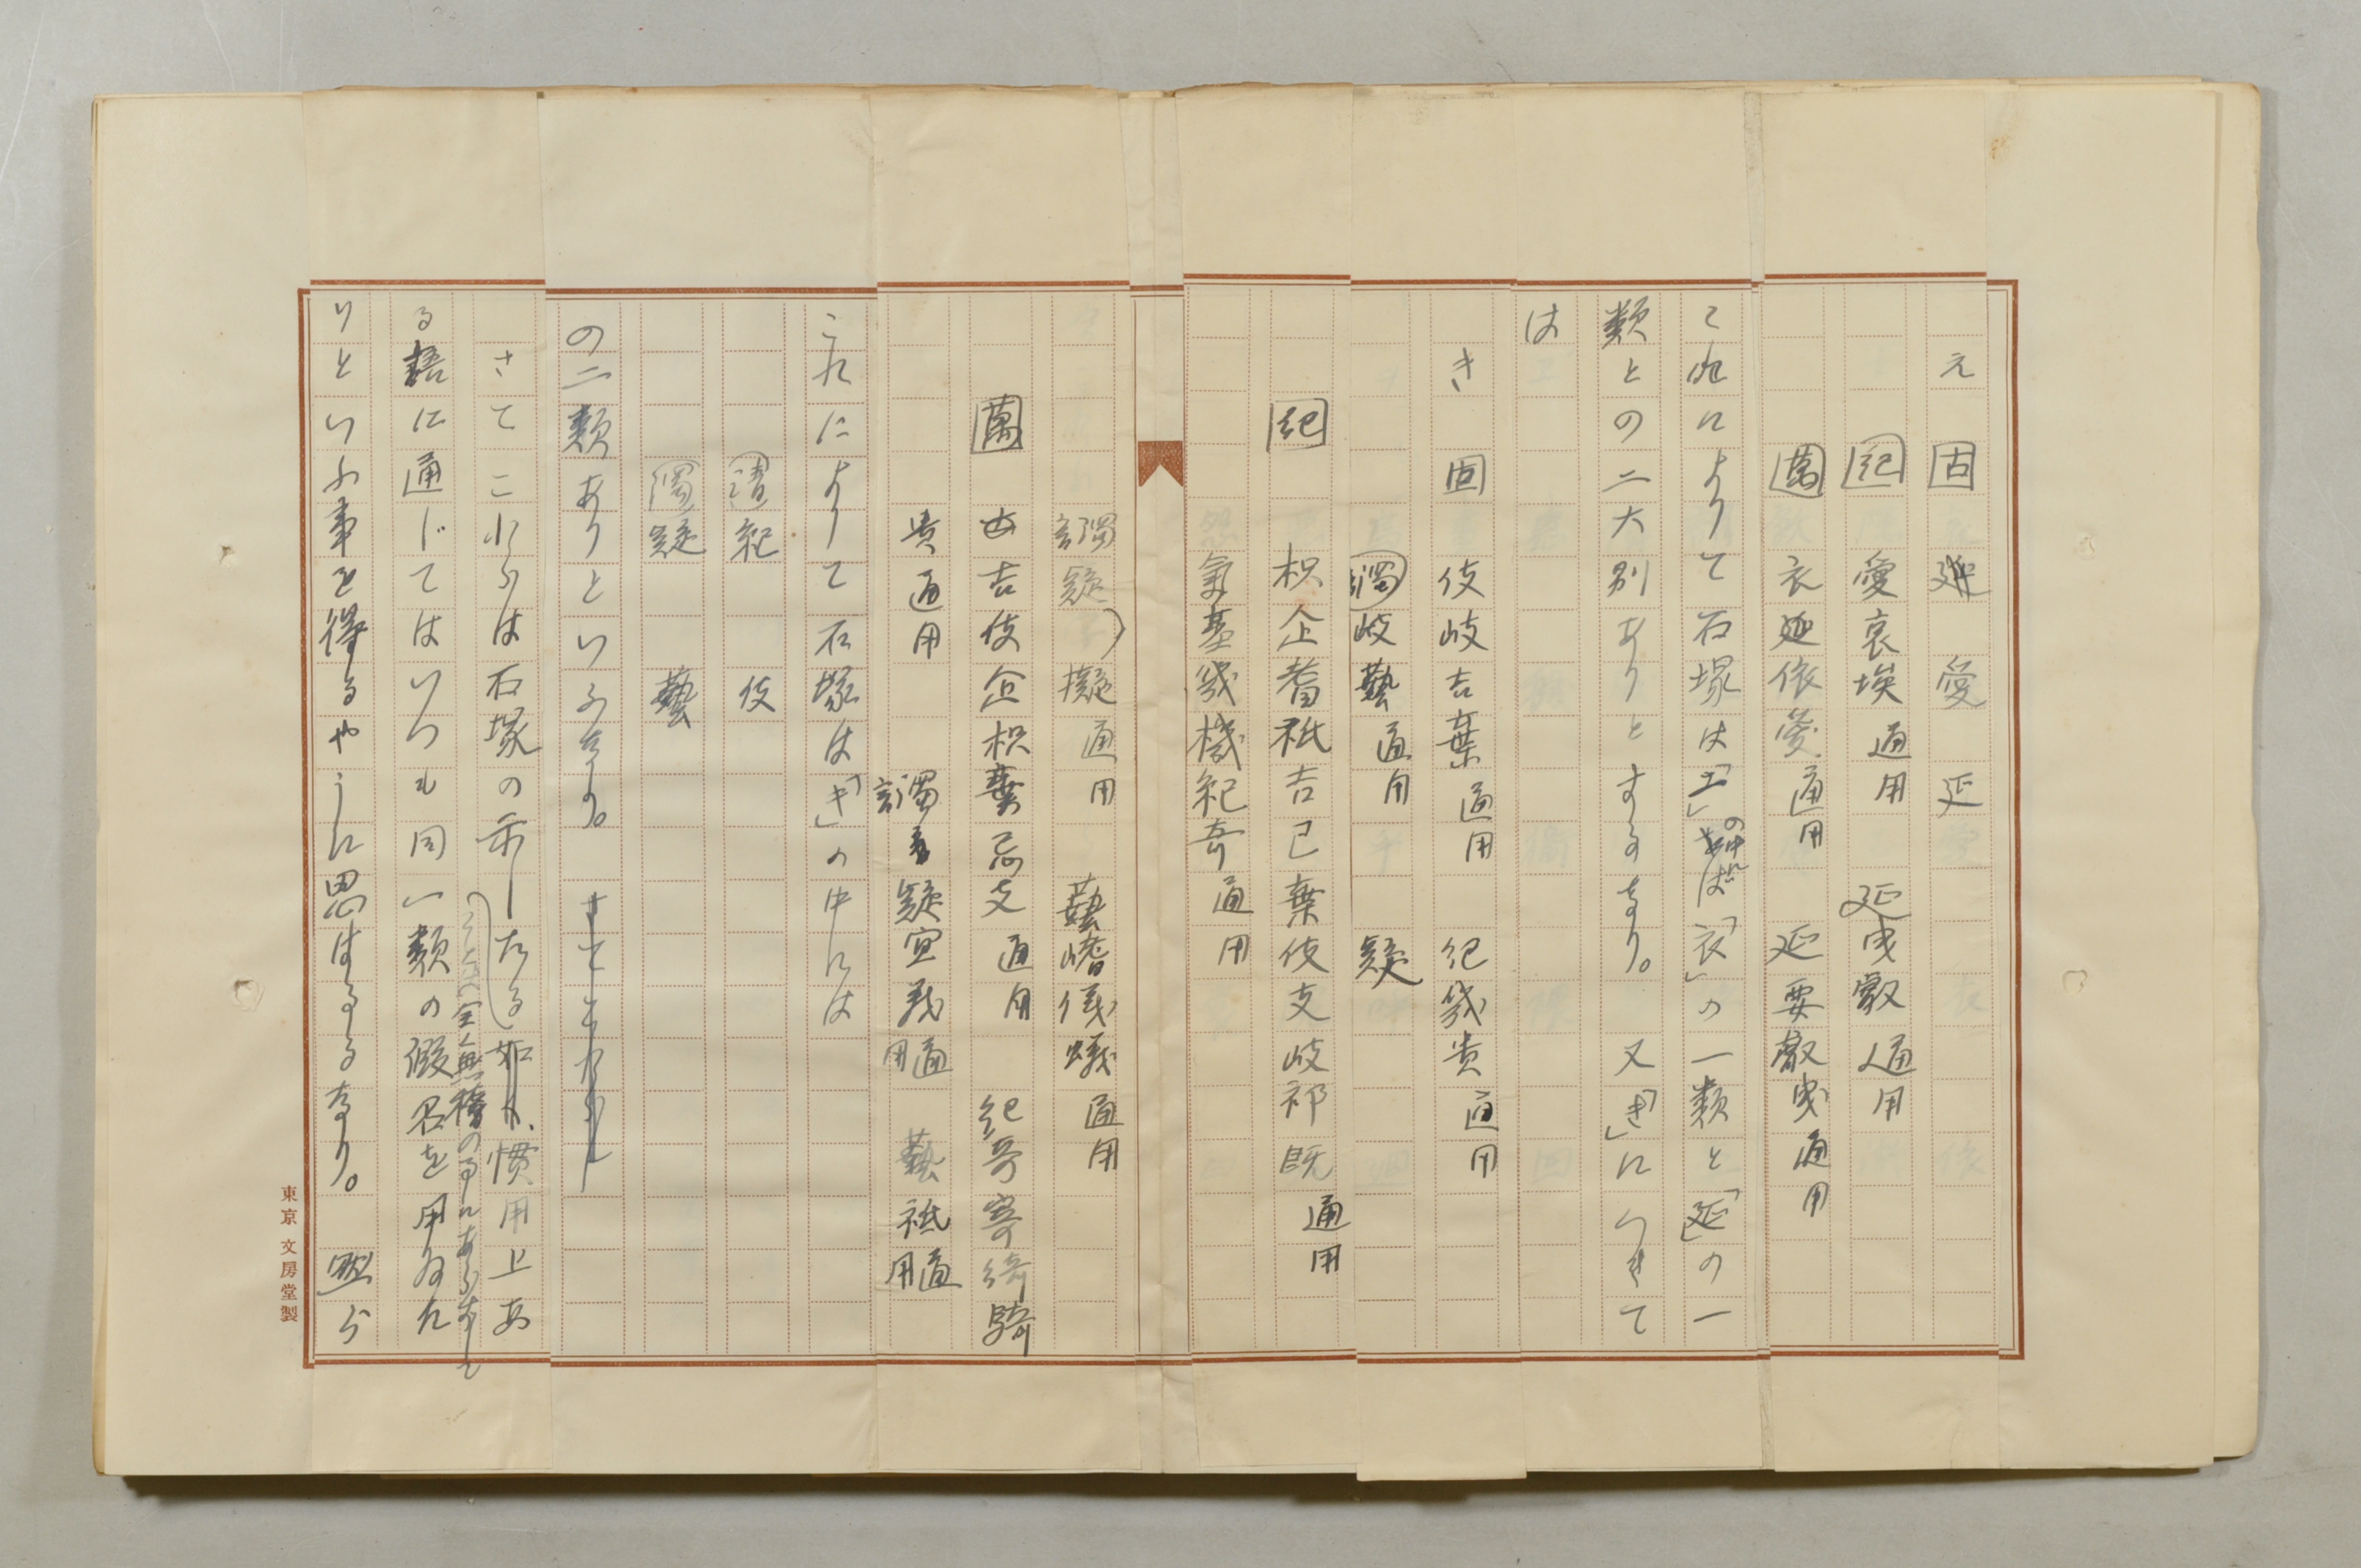 え 古 延 愛 延
紀 愛哀埃通用 延曳叡通用
萬 衣延依愛通用 延要叡曳通用
これによりて石塚は「エ」の中に「衣」の一類と「延」の一
類との二大別ありとするなり。又「き」につきて
は
き 古 伎岐吉棄通用 紀幾貴通用
濁 岐藝通用 疑
紀 枳企耆祇吉己棄伎支岐祁既通用
氣基幾機紀奇通用
濁 疑擬通用 藝嗜儀蟻通用
萬 吉伎企枳棄忌支通用 紀奇寄綺騎
貴通用 濁音疑宜義通用 藝祇通用
これによりて石塚は「き」の中には
清 紀 伎
濁 疑 藝
の二類ありといふなり。
さてこれらは石塚の示したる如く、慣用上あ
全無稽の事にあらずして
る語に通じてはいつも同一類の假名を用ゐた
りといふ事を得るやうに思はるるなり。 然ら
東京 文房堂製